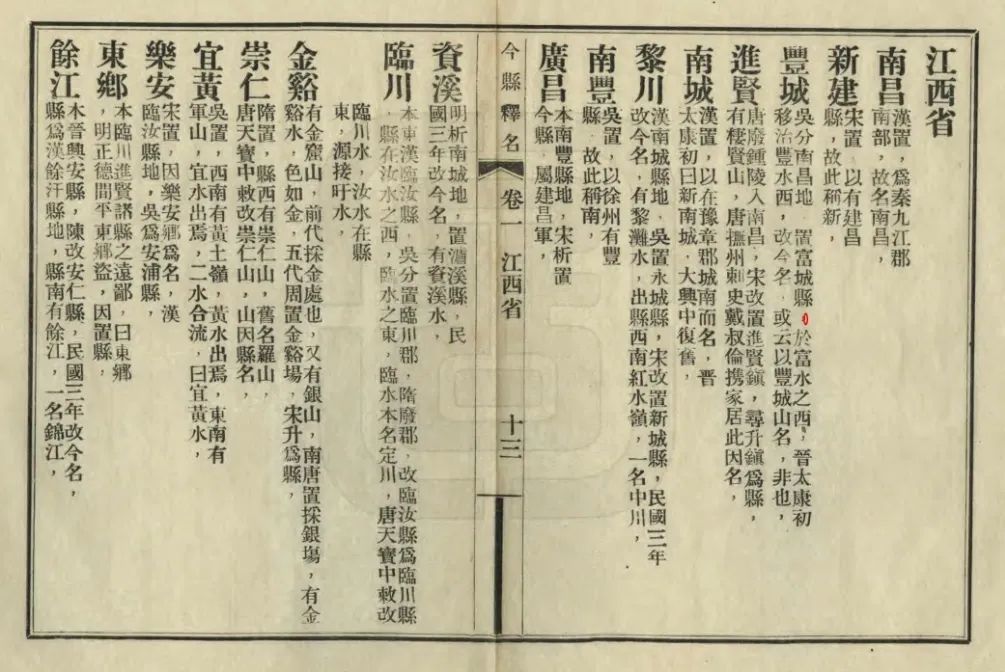 江西省
南昌
漢置，爲秦九江郡
南部，故名南昌，
新建
宋置，以有建昌
縣，故此稱新，
豐城
吳分南昌地，置富城縣，於富水之西，晉太康初
移治豐水西，改今名，或云以豐城山名，非也，
進賢
唐廢鍾陵入南昌，宋改置進賢鎮，尋升鎮爲縣，
有棲賢山，唐撫州刺史戴叔倫携家居此因名，
南城
漢置，以在豫章郡城南而名，晉
太康初曰新南城，大興中復舊，
黎川
漢南城縣地，吳置永城縣，宋改置新城縣，民國三年
改今名，有黎灘水，出縣西南紅水嶺，一名中川，
南豐
吳置，以徐州有豐
縣，故此稱南，
廣昌
本南豐縣地，宋析置
今縣，屬建昌軍，
今縣釋名
卷一
江西省
十三
資溪
明析南城地，置瀘溪縣，民
國三年改今名，有資溪水，
臨川
本東漢臨汝縣，吳分置臨川郡，隋廢郡，改臨汝縣爲臨川縣
，縣在汝水之西，臨水之東，臨水本名定川，唐天寶中敕改
臨川水，汝水在縣
東，源接旴水，
金谿
有金窟山，前代採金處也，又有銀山，南唐置採銀塲，有金
谿水，色如金，五代周置金谿場，宋升爲縣，
崇仁
隋置，縣西有崇仁山，舊名羅山，
唐天寶中敕改崇仁山，山因縣名，
宜黃
吳置，西南有黃土嶺，黃水出焉，東南有
軍山，宜水出焉，二水合流，曰宜黃水，
樂安
宋置，因樂安鄉爲名，漢
臨汝縣地，吳爲安浦縣，
東鄉
本臨川進賢諸縣之遠鄙，曰東鄉
，明正德間平東鄉盜，因置縣，
餘江
本晉興安縣，陳改安仁縣，民國三年改今名，
縣爲漢餘汗縣地，縣南有餘江，一名錦江，